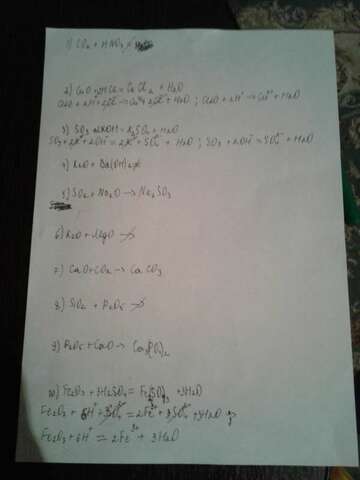 1) CO₂ + HNO₃ ≠
2) CaO + 2HCl = CaCl₂ + H₂O
CaO + 2H⁺ + 2Cl⁻ → Ca²⁺ + 2Cl⁻ + H₂O ; CaO + 2H⁺ → Ca²⁺ + H₂O
3) SO₃ + 2KOH = K₂SO₄ + H₂O
SO₃ + 2K⁺ + 2OH⁻ = 2K⁺ + SO₄²⁻ + H₂O ; SO₃ + 2OH⁻ = SO₄²⁻ + H₂O
4) + Ba(OH)₂ ≠
5) SO₂ + Na₂O → Na₂SO₃
6) K₂O + MgO ↛
7) CaO + CO₂ → CaCO₃
8) SiO₂ + P₂O₅ ↛
9) P₂O₅ + CaO → Ca₃(PO₄)₂
10) Fe₂O₃ + 3H₂SO₄ = Fe₂(SO₄)₃ + 3H₂O
Fe₂O₃ + 6H⁺ + 3SO₄²⁻ = 2Fe³⁺ + 3SO₄²⁻ + 3H₂O
Fe₂O₃ + 6H⁺ = 2Fe³⁺ + 3H₂O